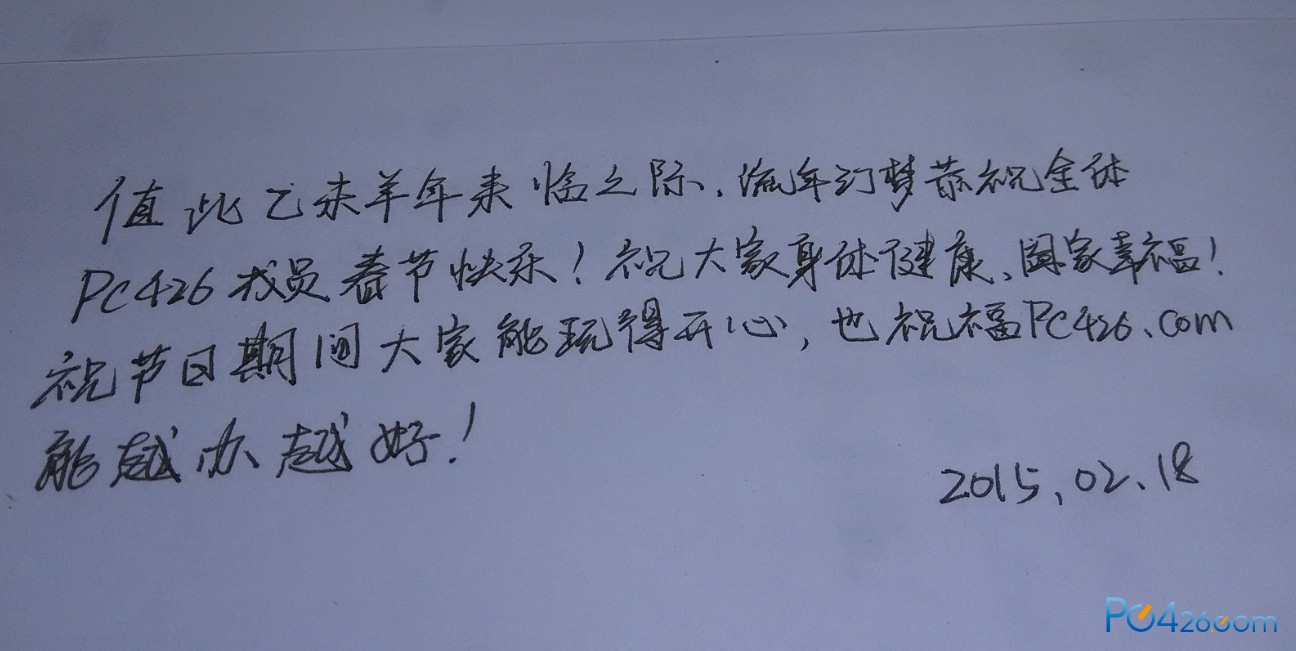 值此乙未羊年来临之际,流年汀梦恭祝全体
PC426成员春节快乐!祝大家身体健康、阖家幸福!
祝节日期间大家能玩得开心,也祝福PC426.com
能越办越好!
2015.02.18
PC426com